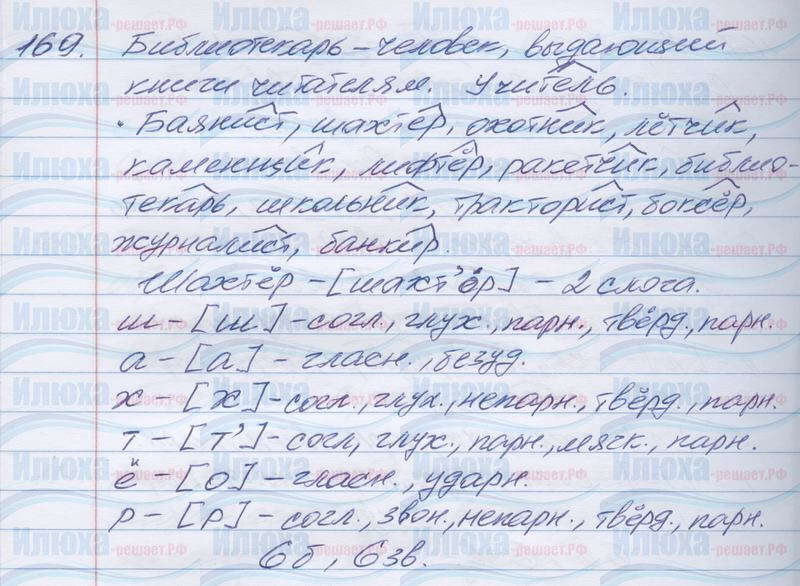 169. Библиотекарь – человек, выдающий
книги читателям. Учитель.
Баянист, шахтёр, охотник, лётчик,
каменщик, лифтёр, ракетчик, библио-
текарь, школьник, тракторист, боксёр,
журналист, банкир.
Шахтёр – [шахт'ор] – 2 слога.
ш – [ш] – согл., глух., парн., твёрд., парн.
а – [а] – гласн., безуд.
х – [х] – согл., глух., непарн., твёрд., парн.
т – [т'] – согл, глух., парн., мягк., парн.
ё – [о] – гласн., ударн.
р – [р] – согл., звон., непарн., твёрд., парн.
6б, 6зв.
Илюха-решает.РФ